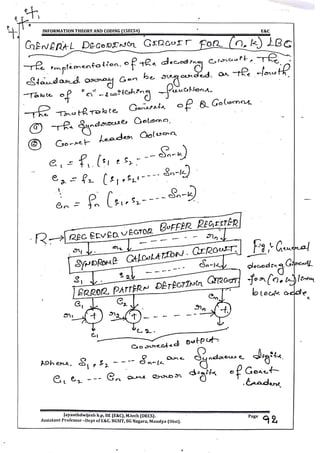 INFORMATION THEORY AND CODING (15EC54) E&C
GENERAL DECODING CIRCUIT FOR (n,k) LBC
The implementation of the decoding circuit, The
Standard array Can be regarded as the Touth
Table of "n" switching functions
The Truth Table Consists of 2 Columns
① The Syndrome Column.
② Co-set Leader Column
e1 = f1 (s1, s2, ---- Sn-k)
e2 = f2 (s1, s2, ---- Sn-k)
en = fn (s1, s2, ---- Sn-k)
R → RECEIVED VECTOR BUFFER REGISTER
r1 r2 rn
SYNDROME CALCULATION CIRCUIT
S1 S2 Sn-k
ERROR PATTERN DETECTING CIRCUIT
e1 e2 en
r1 + r2 + rn +
C1 C2
Corrected output
Fig:- General
decoding Circuit
for (n,k) linear
block code
Where, S1, S2 ---- Sn-k are Syndrome digits
e1 e2 --- en are error digits of Coset
Leader.
Jayanthdwijesh h.p, BE (E&C), M.tech (DECS).
Assistant Professor –Dept of E&C, BGMIT, BG Nagara, Mandya (Dist).
Page 92